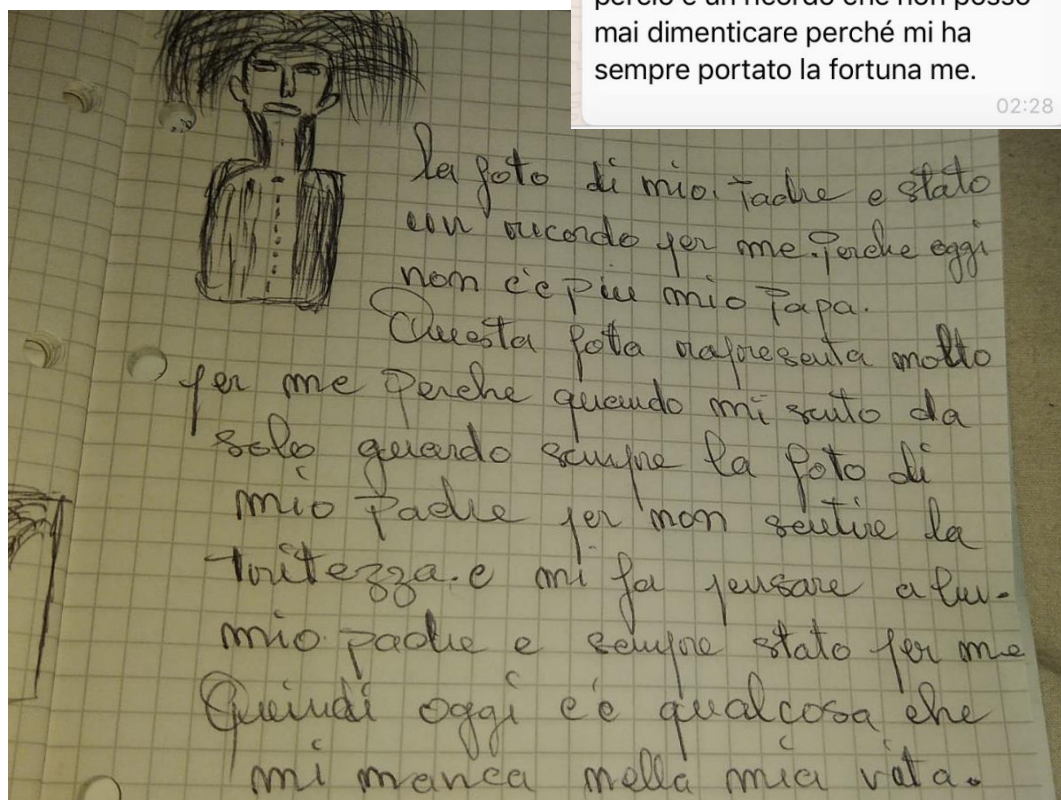 perciò è un ricordo che non posso
mai dimenticare perché mi ha
sempre portato la fortuna me.
02:28
la foto di mio. Padre e stato
un ricordo per me. Perche oggi
non c'e piu mio Papa.
Questa fota rapresenta molto
per me Perche quando mi sento da
solo guardo sempre la foto di
mio Padre per non sentire la
tritezza. e mi fa pensare a lui.
mio padre e sempre stato per me
Quindi oggi c'é qualcosa che
mi manca nella mia vita.